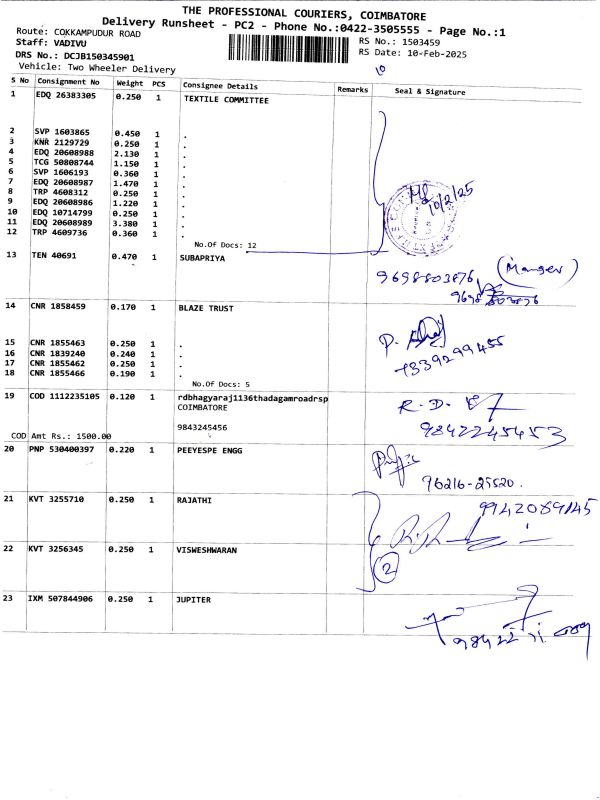 THE PROFESSIONAL COURIERS, COIMBATORE
Delivery Runsheet - PC2 - Phone No.:0422-3505555 - Page No.:1
Route: COKKAMPUDUR ROAD
Staff: VADIVU
RS No.: 1503459
DRS No.: DCJB150345901
RS Date: 10-Feb-2025
Vehicle: Two Wheeler Delivery
S No Consignment No Weight PCS Consignee Details Remarks Seal & Signature
1 EDQ 26383305 0.250 1 TEXTILE COMMITTEE
2 SVP 1603865 0.450 1 .
3 KNR 2129729 0.250 1 .
4 EDQ 20608988 2.130 1 .
5 TCG 50808744 1.150 1 .
6 SVP 1606193 0.360 1 .
7 EDQ 20608987 1.470 1 .
8 TRP 4608312 0.250 1 .
9 EDQ 20608986 1.220 1 .
10 EDQ 10714799 0.250 1 .
11 EDQ 20608989 3.380 1 .
12 TRP 4609736 0.360 1 .
10/2/25
No.Of Docs: 12
13 TEN 40691 0.470 1 SUBAPRIYA
9698803876 (Manger)
14 CNR 1858459 0.170 1 BLAZE TRUST
15 CNR 1855463 0.250 1 .
16 CNR 1839240 0.240 1 .
17 CNR 1855462 0.250 1 .
18 CNR 1855466 0.190 1 .
No.Of Docs: 5
19 COD 1112235105 0.120 1 rdbhagyaraj1136thadagamroadrsp
COIMBATORE
R.D.
9843245456
9842245453
COD Amt Rs.: 1500.00
20 PNP 530400397 0.220 1 PEEYESPE ENGG
96216-25520.
21 KVT 3255710 0.250 1 RAJATHI
9942089145
22 KVT 3256345 0.250 1 VISWESHWARAN
2
23 IXM 507844906 0.250 1 JUPITER